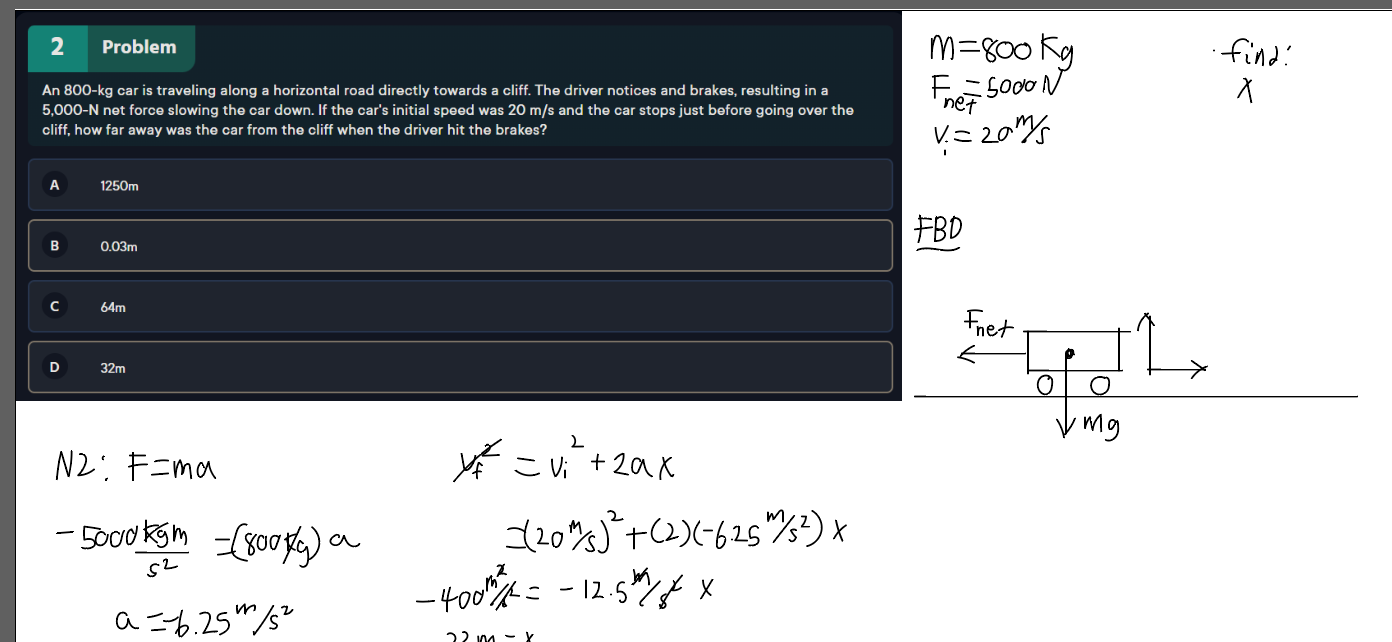 2 Problem
An 800-kg car is traveling along a horizontal road directly towards a cliff. The driver notices and brakes, resulting in a
5,000-N net force slowing the car down. If the car's initial speed was 20 m/s and the car stops just before going over the
cliff, how far away was the car from the cliff when the driver hit the brakes?
A 1250m
B 0.03m
C 64m
D 32m
m=800 kg
F_net=5000 N
v_i=20 m/s
find:
x
FBD
F_net
mg
N2: F=ma
-5000 kgm/s² =(800kg) a
a=-6.25 m/s²
v_f² = v_i² + 2ax
=(20 m/s)² + (2)(-6.25 m/s²) x
-400 m²/s² = -12.5 m/s² x
32m = x